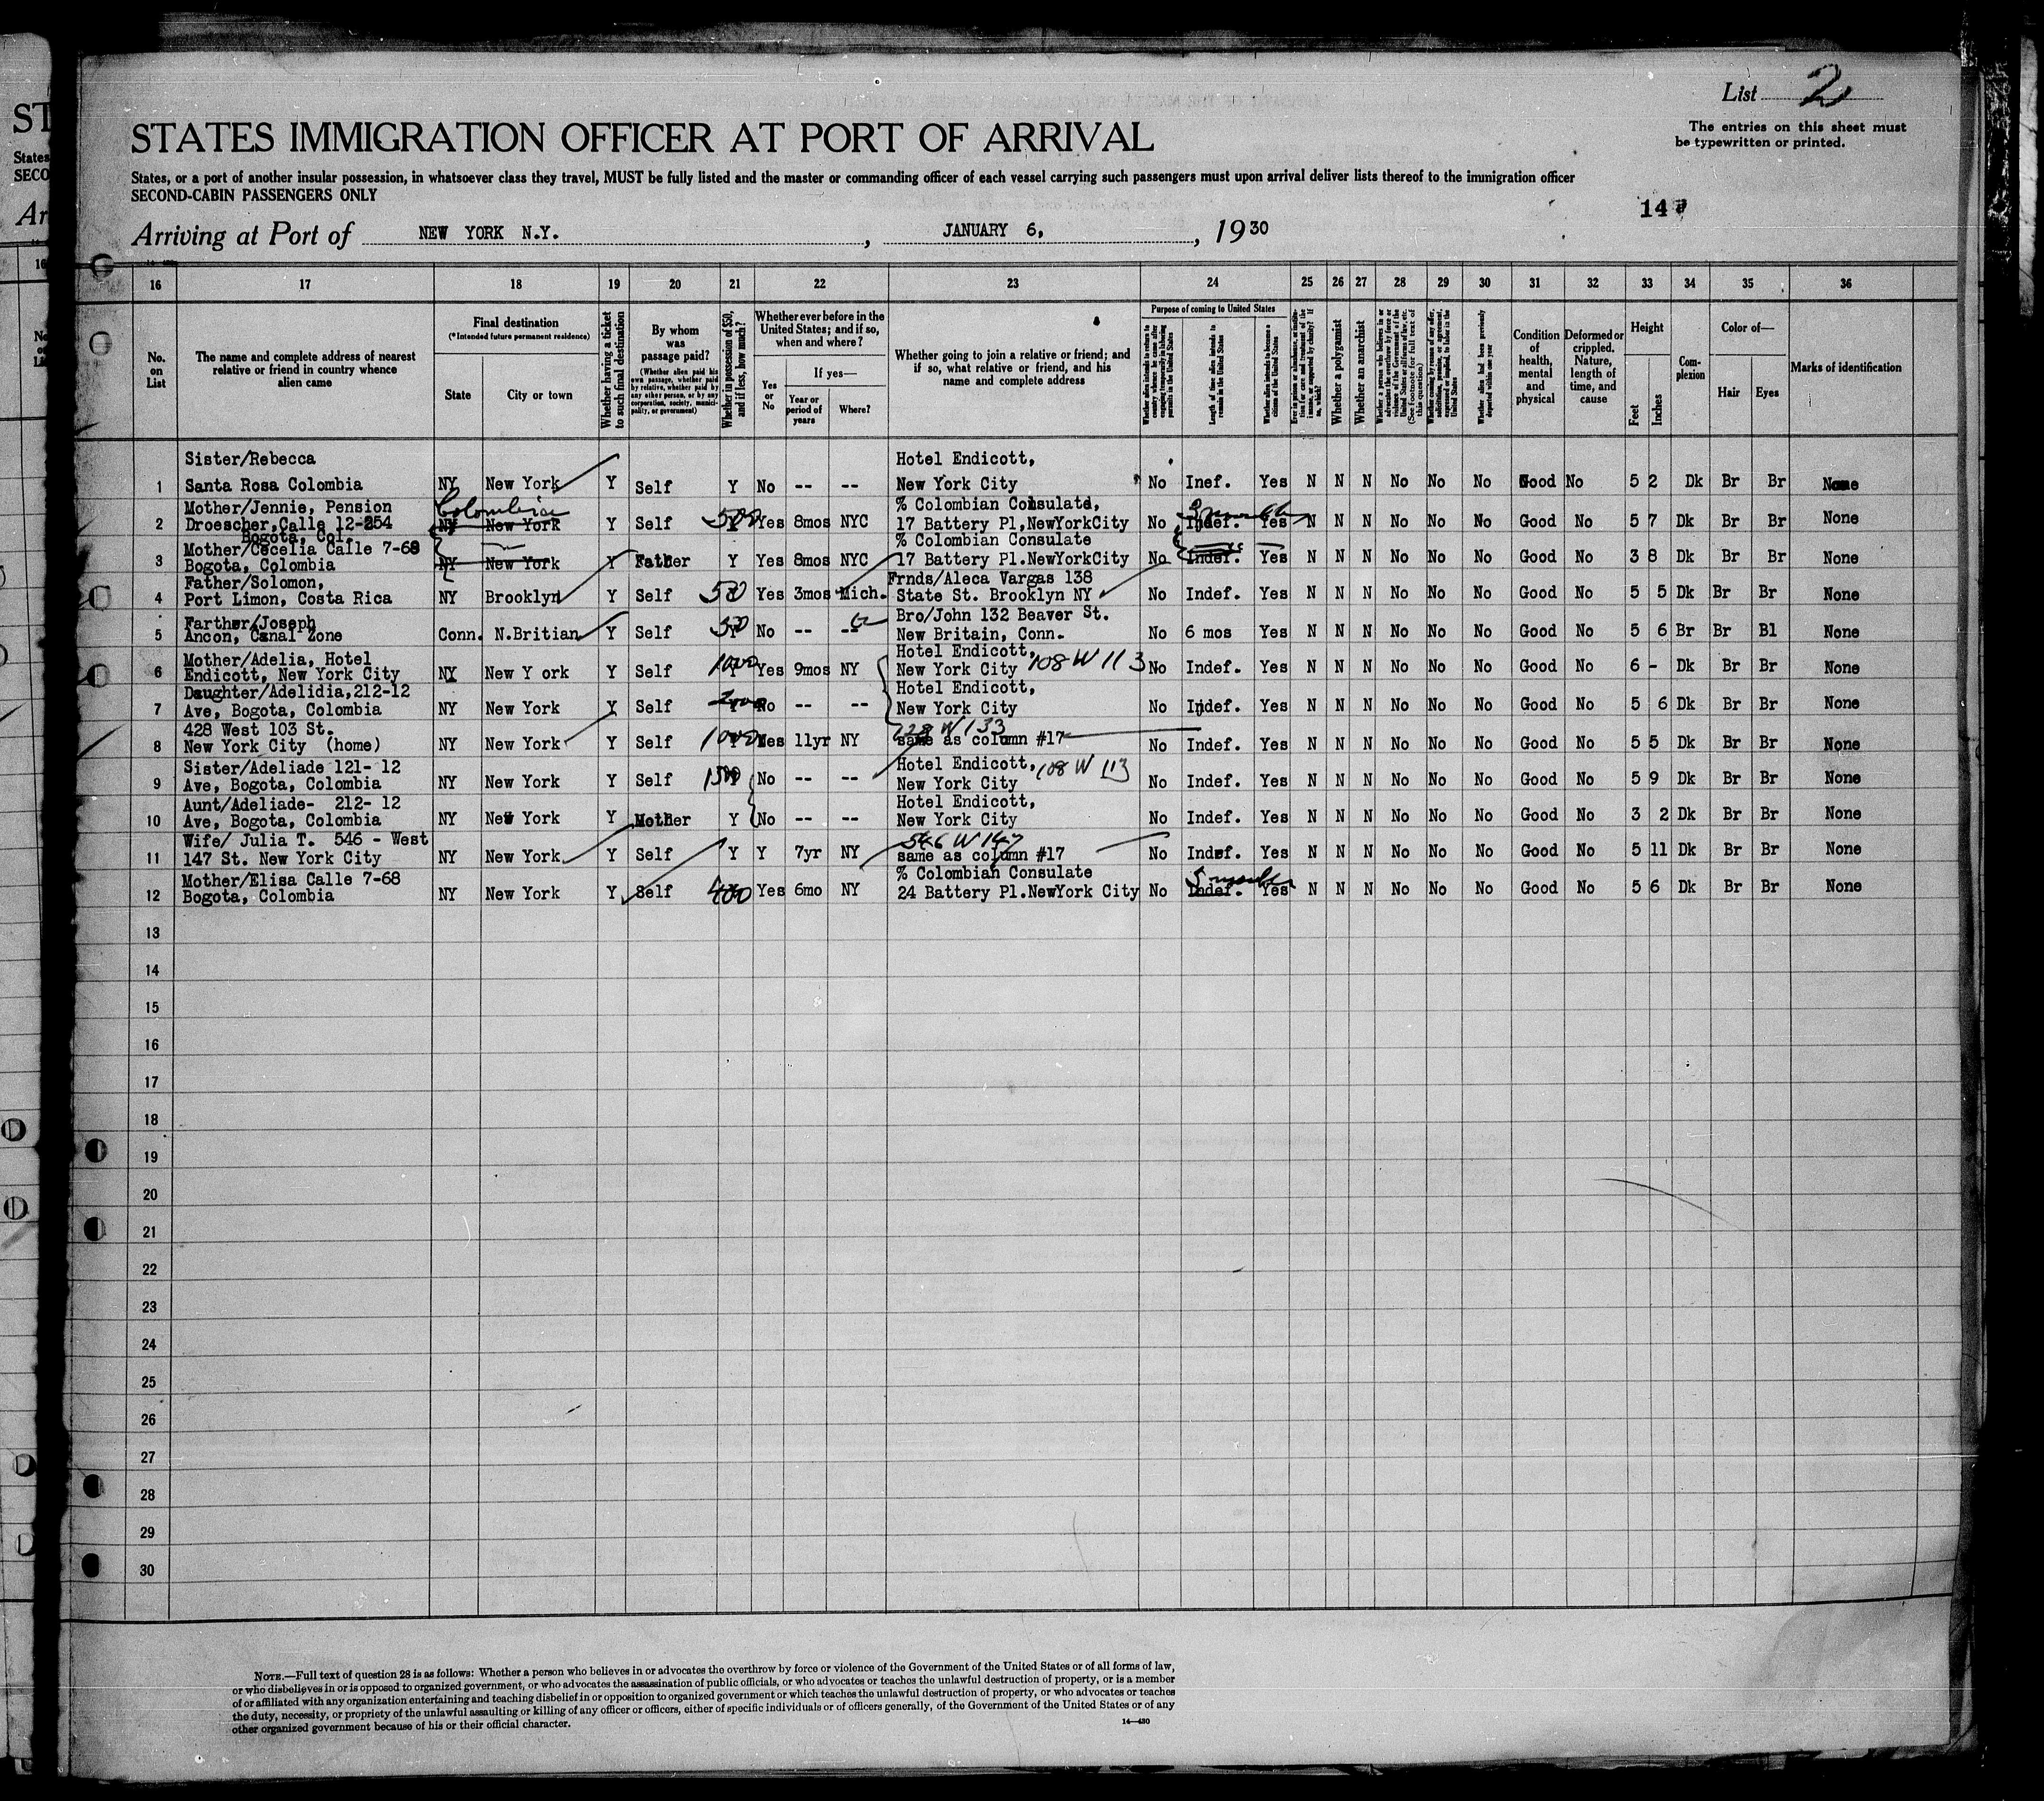 List 2
The entries on this sheet must
be typewritten or printed.
STATES IMMIGRATION OFFICER AT PORT OF ARRIVAL
States, or a port of another insular possession, in whatsoever class they travel, MUST be fully listed and the master or commanding officer of each vessel carrying such passengers must upon arrival deliver lists thereof to the immigration officer
SECOND-CABIN PASSENGERS ONLY
14
Arriving at Port of NEW YORK N.Y. , JANUARY 6, , 1930
16 17 18 19 20 21 22 23 24 25 26 27 28 29 30 31 32 33 34 35 36
No. on List
The name and complete address of nearest relative or friend in country whence alien came
Final destination
(*Intended future permanent residence)
State
City or town
Whether having a ticket to such final destination
By whom was passage paid?
(Whether alien paid his own passage, whether paid by relative, whether paid by any other person, or by any corporation, society, municipality, or government)
Whether in possession of $50, and if less, how much?
Whether ever before in the United States; and if so, when and where?
Yes or No
If yes—
Year or period of years
Where?
Whether going to join a relative or friend; and if so, what relative or friend, and his name and complete address
Purpose of coming to United States
Whether alien intends to return to country whence he came after engaging temporarily in laboring pursuits in the United States
Length of time alien intends to remain in the United States
Whether alien intends to become a citizen of the United States
Ever in prison or almshouse, or institution for care and treatment of the insane, or supported by charity? If so, which?
Whether a polygamist
Whether an anarchist
Whether a person who believes in or advocates the overthrow by force or violence of the Government of the United States or all forms of law, etc. (See footnote for full text of this question)
Whether coming by reason of any offer, solicitation, promise, or agreement, expressed or implied, to labor in the United States
Whether alien had been previously deported within one year
Condition of health, mental and physical
Deformed or crippled. Nature, length of time, and cause
Height
Feet
Inches
Complexion
Color of—
Hair
Eyes
Marks of identification
Sister/Rebecca Hotel Endicott,
1 Santa Rosa Colombia NY New York Y Self Y No -- -- New York City No Inef. Yes N N N No No No Good No 5 2 Dk Br Br None
Mother/Jennie, Pension Colombia % Colombian Consulate, 3 months
2 Droescher,Calle 12-254 NY New York Y Self 500 Yes 8mos NYC 17 Battery Pl,NewYorkCity No Indef. Yes N N N No No No Good No 5 7 Dk Br Br None
Bogota, Col. % Colombian Consulate
Mother/Cecelia Calle 7-68
3 Bogota, Colombia NY New York Y Father Y Yes 8mos NYC 17 Battery Pl.NewYorkCity No Indef. Yes N N N No No No Good No 3 8 Dk Br Br None
Father/Solomon, Frnds/Aleca Vargas 138
4 Port Limon, Costa Rica NY Brooklyn Y Self 50 Yes 3mos Mich. State St. Brooklyn NY No Indef. Yes N N N No No No Good No 5 5 Dk Br Br None
Farther/Joseph Bro/John 132 Beaver St.
5 Ancon, Canal Zone Conn. N.Britian Y Self 50 No -- -- New Britain, Conn. No 6 mos Yes N N N No No No Good No 5 6 Br Br Bl None
Mother/Adelia, Hotel Hotel Endicott,
6 Endicott, New York City NY New Y ork Y Self 1000 Yes 9mos NY New York City 108 W 113 No Indef. Yes N N N No No No Good No 6 - Dk Br Br None
Daughter/Adelidia,212-12 Hotel Endicott,
7 Ave, Bogota, Colombia NY New York Y Self Y No -- -- New York City No Indef. Yes N N N No No No Good No 5 6 Dk Br Br None
428 West 103 St. W 133
8 New York City (home) NY New York Y Self 1000 Yes 11yr NY same as column #17 No Indef. Yes N N N No No No Good No 5 5 Dk Br Br None
Sister/Adeliade 121- 12 Hotel Endicott, 108 W 113
9 Ave, Bogota, Colombia NY New York Y Self No -- -- New York City No Indef. Yes N N N No No No Good No 5 9 Dk Br Br None
Aunt/Adeliade- 212- 12 Hotel Endicott,
10 Ave, Bogota, Colombia NY New York Y Mother Y No -- -- New York City No Indef. Yes N N N No No No Good No 3 2 Dk Br Br None
Wife/ Julia T. 546 - West 546 W 147
11 147 St. New York City NY New York Y Self Y Y 7yr NY same as column #17 No Indef. Yes N N N No No No Good No 5 11 Dk Br Br None
Mother/Elisa Calle 7-68 % Colombian Consulate 5 months
12 Bogota, Colombia NY New York Y Self 400 Yes 6mo NY 24 Battery Pl.NewYork City No Indef. Yes N N N No No No Good No 5 6 Dk Br Br None
13
14
15
16
17
18
19
20
21
22
23
24
25
26
27
28
29
30
NOTE.—Full text of question 28 is as follows: Whether a person who believes in or advocates the overthrow by force or violence of the Government of the United States or of all forms of law,
or who disbelieves in or is opposed to organized government, or who advocates the assassination of public officials, or who advocates or teaches the unlawful destruction of property, or is a member
of or affiliated with any organization entertaining and teaching disbelief in or opposition to organized government or which teaches the unlawful destruction of property, or who advocates or teaches
the duty, necessity, or propriety of the unlawful assaulting or killing of any officer or officers, either of specific individuals or of officers generally, of the Government of the United States or of any
other organized government because of his or their official character.
14—430